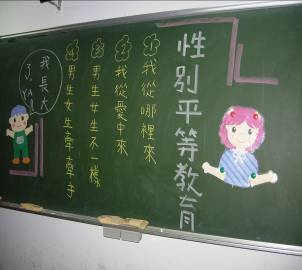 性別平等教育
①我從哪裡來
②我從愛中來
③男生女生不一樣
④男生女生牽牽手
我長大
了.YA!